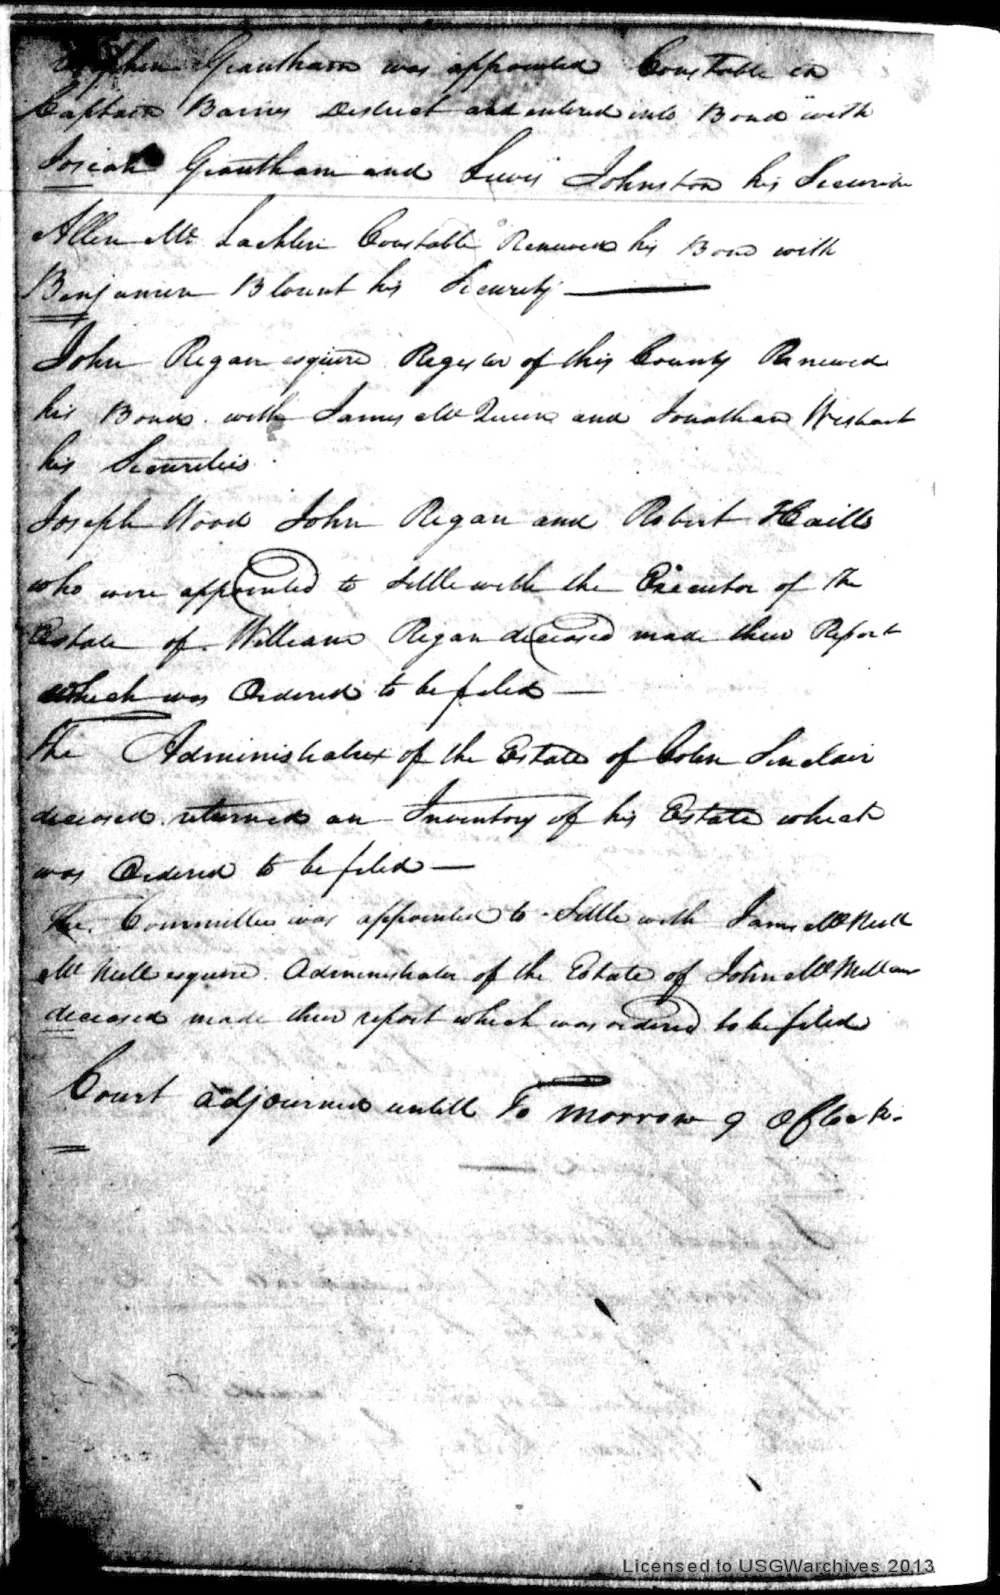 Stephen Grantham was appointed Constable in
Captain Barnes District and entered into Bond with
Josiah Grantham and Lewis Johnston his Securitie
Allen Mc Lachlin Constable Renewed his Bond with
Benjamin Blount his Security
John Regan esquire Register of this County Renewed
his Bond with James McQueen and Jonathan Wishart
his Securities
Joseph Wood John Regan and Robert Hails
who were appointed to Settle with the Executor of the
Estate of William Regan deceased made their Report
which was Ordered to be filed
The Administratrix of the Estate of John Sinclair
deceased returned an Inventory of his Estate which
was Ordered to be filed
The Committee was appointed to Settle with James McNeill
Mc Neill esquire Administrator of the Estate of John McMillan
deceased made their report which was ordered to be filed
Court adjourned untill To morrow 9 OClock.
Licensed to USGWarchives 2013